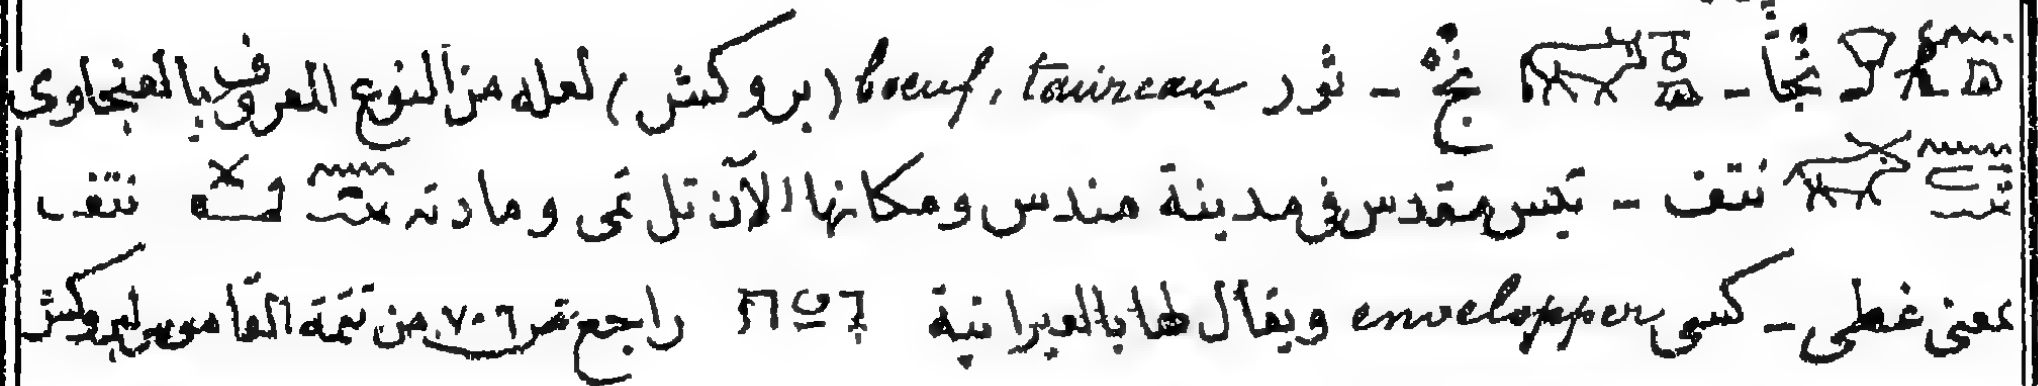 نجأ - نج - ثور boeuf, taureau (بروكش) لعله من النوع المعروف بالعنجاوى
نتف - تيس مقدس فى مدينة مندس ومكانها الآن تل تمى ومادته نتف
بمعنى غطى - كسى envelopper ويقال لها بالعبرانية راجع نمر ٧٠٦ من تتمة القاموس لبروكش